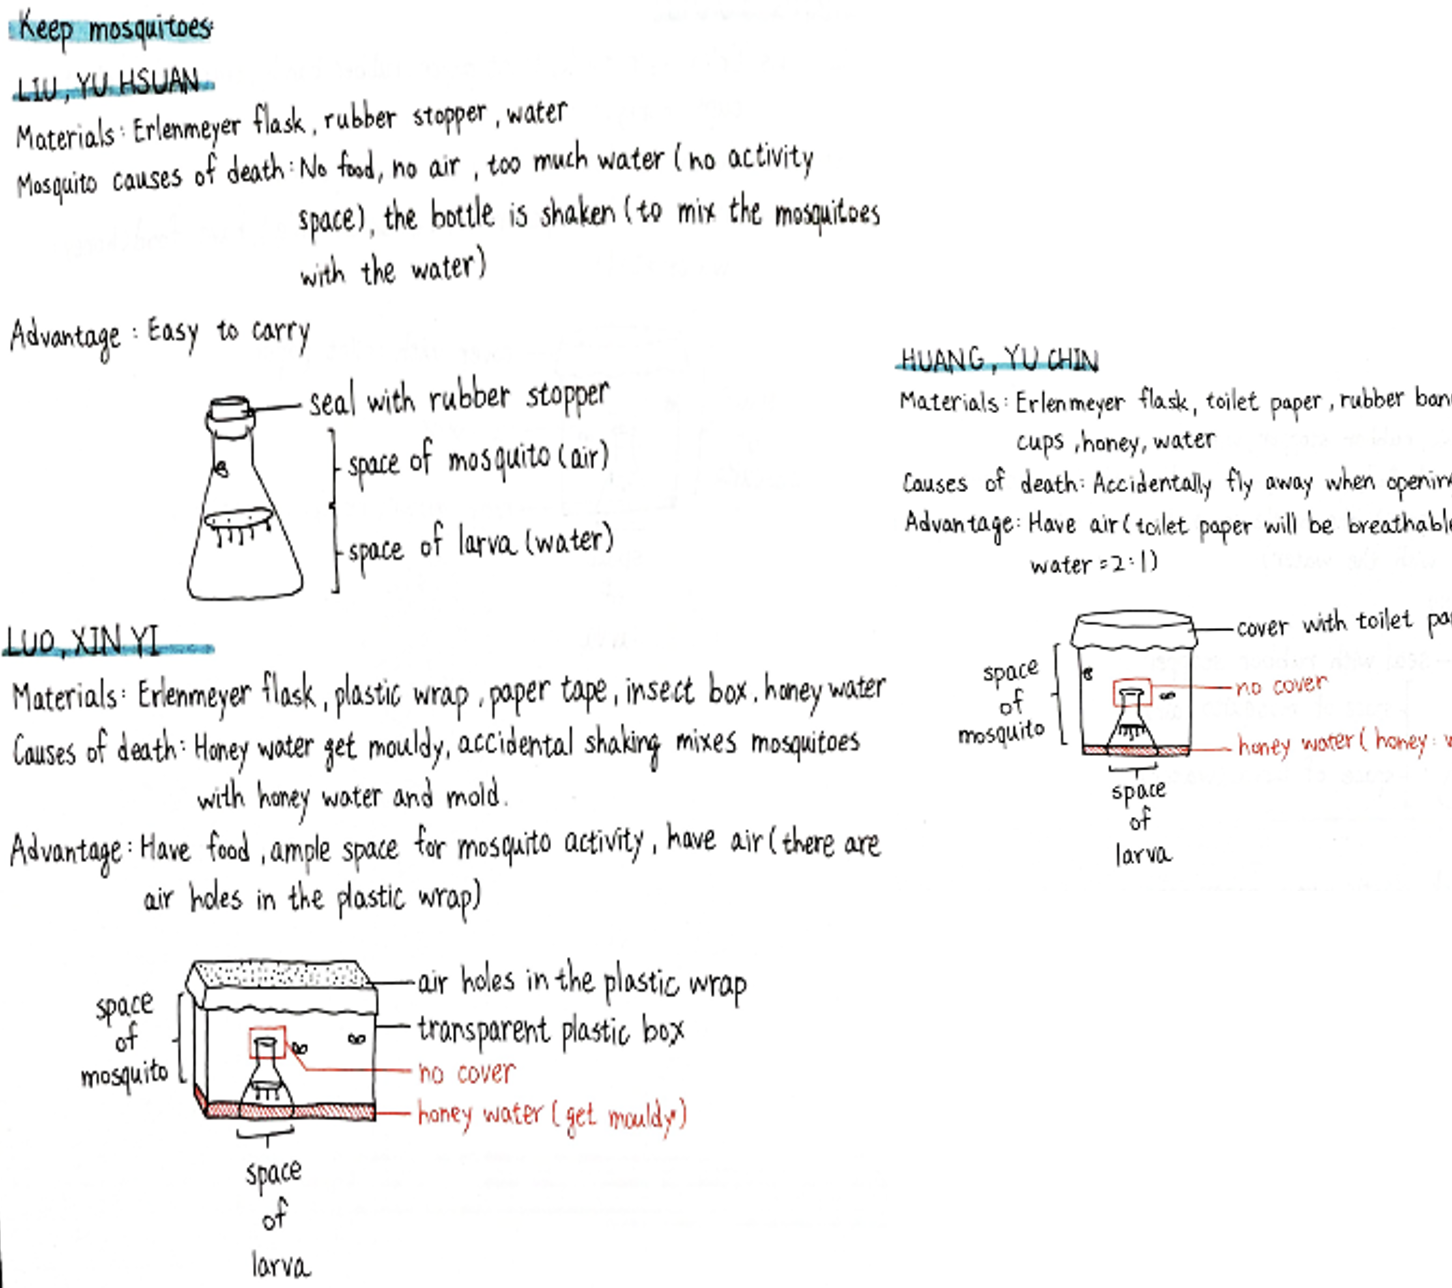 Keep mosquitoes
LIU, YU HSUAN
Materials: Erlenmeyer flask, rubber stopper, water
Mosquito causes of death: No food, no air, too much water (no activity
space), the bottle is shaken (to mix the mosquitoes
with the water)
Advantage: Easy to carry
seal with rubber stopper
space of mosquito (air)
space of larva (water)
LUO, XIN YI
Materials: Erlenmeyer flask, plastic wrap, paper tape, insect box, honey water
Causes of death: Honey water get mouldy, accidental shaking mixes mosquitoes
with honey water and mold.
Advantage: Have food, ample space for mosquito activity, have air (there are
air holes in the plastic wrap)
air holes in the plastic wrap
transparent plastic box
no cover
honey water (get mouldy)
space
of
mosquito
space
of
larva
HUANG, YU CHIN
Materials: Erlenmeyer flask, toilet paper, rubber
cups, honey, water
Causes of death: Accidentally fly away when
Advantage: Have air (toilet paper will be
water = 2:1)
cover with toilet
no cover
honey water (honey:
space
of
mosquito
space
of
larva